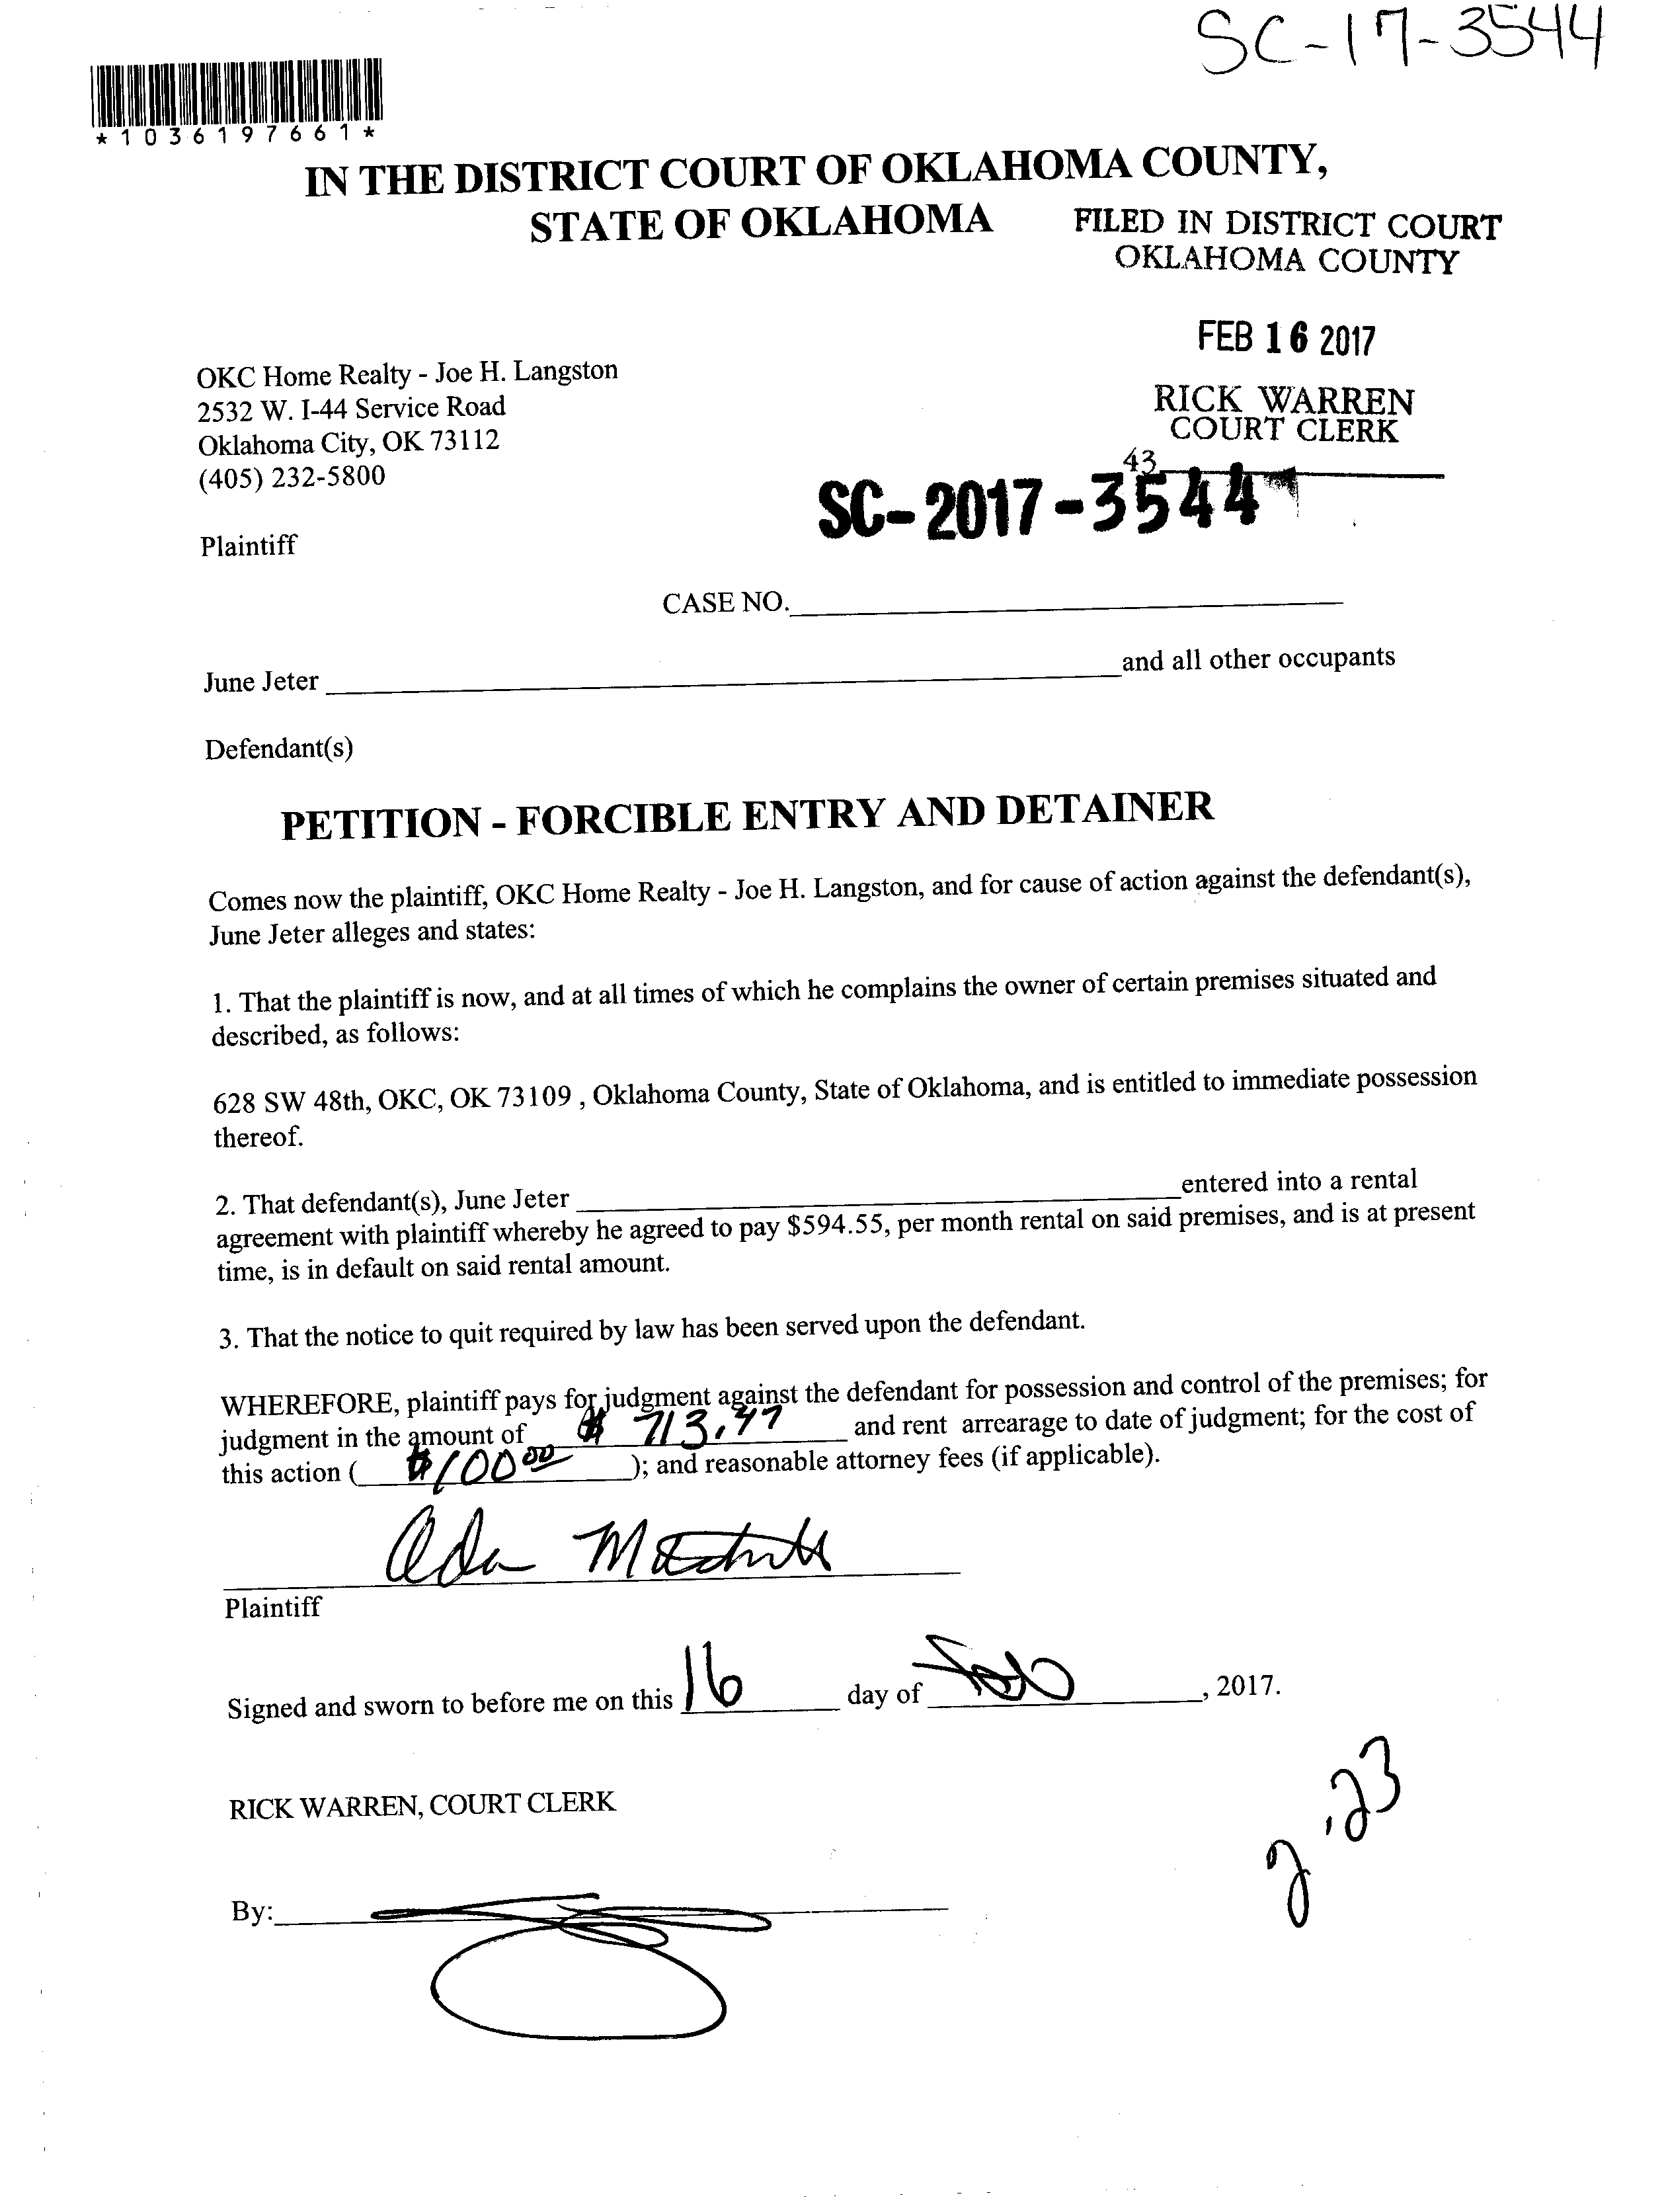 SC-17-3544
*1036197661*
IN THE DISTRICT COURT OF OKLAHOMA COUNTY,
STATE OF OKLAHOMA
FILED IN DISTRICT COURT
OKLAHOMA COUNTY
FEB 16 2017
RICK WARREN
COURT CLERK
43
OKC Home Realty - Joe H. Langston
2532 W. I-44 Service Road
Oklahoma City, OK 73112
(405) 232-5800
SC-2017-3544
Plaintiff
CASE NO.
June Jeter and all other occupants
Defendant(s)
PETITION - FORCIBLE ENTRY AND DETAINER
Comes now the plaintiff, OKC Home Realty - Joe H. Langston, and for cause of action against the defendant(s),
June Jeter alleges and states:
1. That the plaintiff is now, and at all times of which he complains the owner of certain premises situated and
described, as follows:
628 SW 48th, OKC, OK 73109 , Oklahoma County, State of Oklahoma, and is entitled to immediate possession
thereof.
2. That defendant(s), June Jeter entered into a rental
agreement with plaintiff whereby he agreed to pay $594.55, per month rental on said premises, and is at present
time, is in default on said rental amount.
3. That the notice to quit required by law has been served upon the defendant.
WHEREFORE, plaintiff pays for judgment against the defendant for possession and control of the premises; for
judgment in the amount of $ 713.47 and rent arrearage to date of judgment; for the cost of
this action ( $100.00 ); and reasonable attorney fees (if applicable).
Ada
Plaintiff
Signed and sworn to before me on this 16 day of Feb, 2017.
RICK WARREN, COURT CLERK
By:
2.23